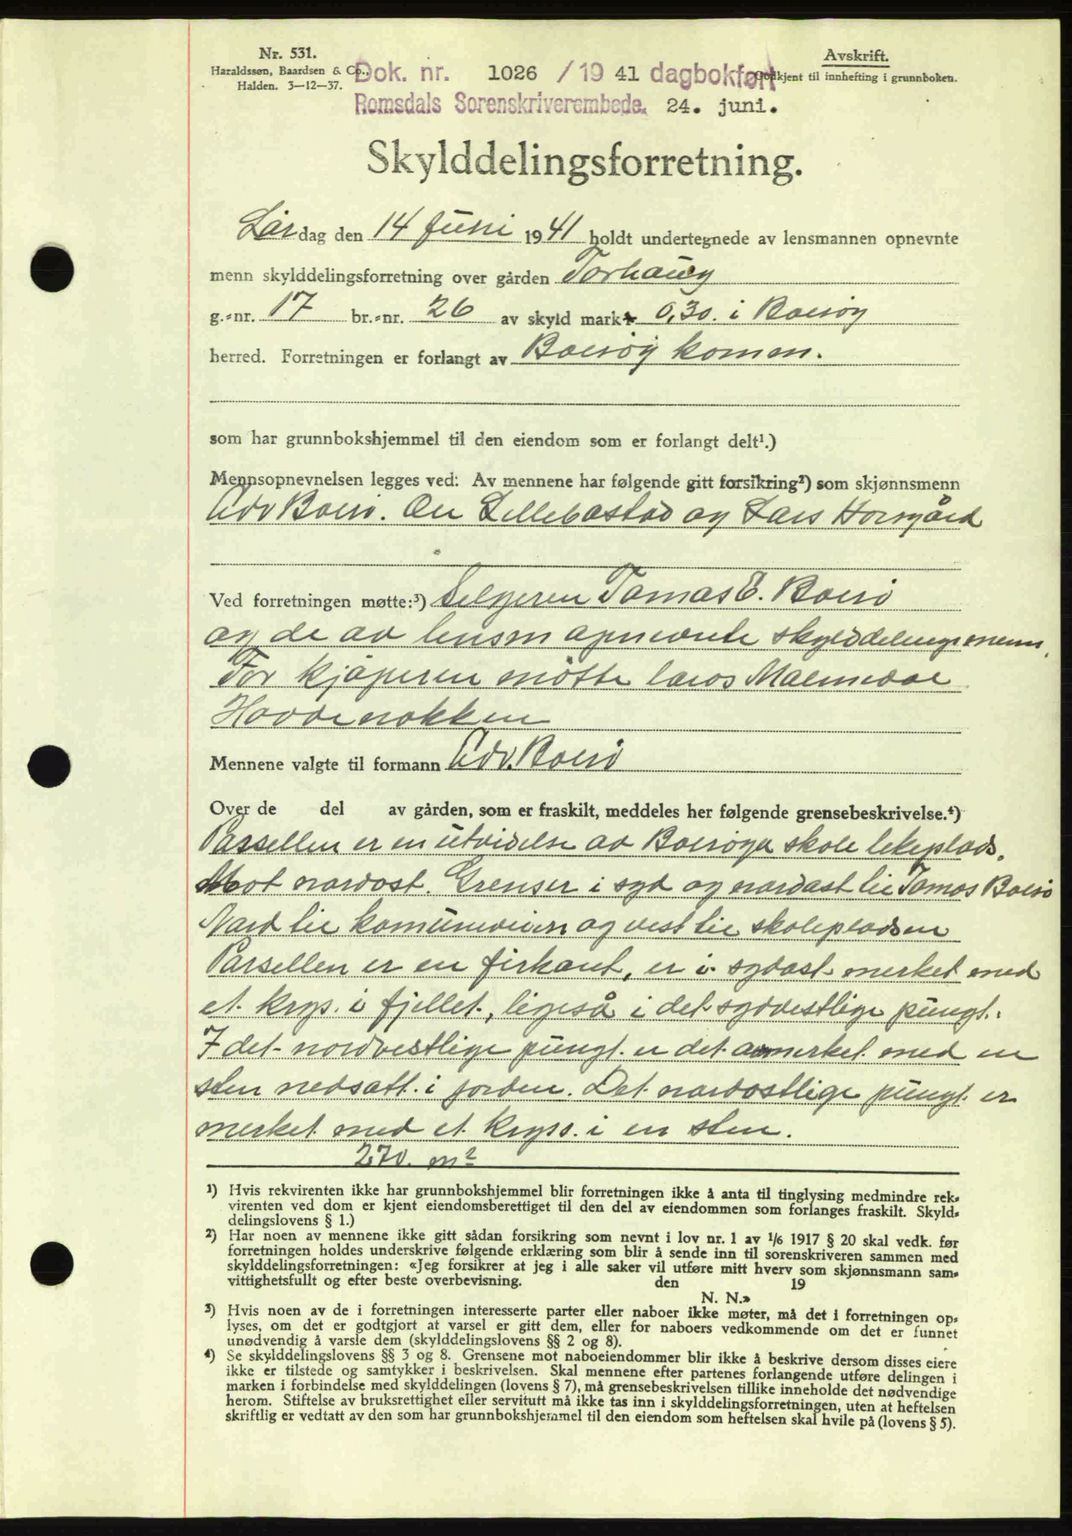 Nr. 531.
Haraldssøn, Baardsen & Co.,
Halden. 3—12—37.
Dok. nr. 1026 /19 41 dagbokført
Romsdals Sorenskriverembede. 24. juni.
Avskrift.
Godkjent til innhefting i grunnboken.
Skylddelingsforretning.
Lørdag den 14 Juni 1941 holdt undertegnede av lensmannen opnevnte
menn skylddelingsforretning over gården Torhaug
g.-nr. 17 br.-nr. 26 av skyld mark 0,30. i Bolsøy
herred. Forretningen er forlangt av Bolsøy komm.
som har grunnbokshjemmel til den eiendom som er forlangt delt¹.)
Mennsopnevnelsen legges ved: Av mennene har følgende gitt forsikring²) som skjønnsmenn
Edv Bolsø. Ole Lillebostad og Lars Horsgård
Ved forretningen møtte:³) Selgeren Tomas E. Bolsø
og de av lensm opnevnte skylddelingsmenn.
For kjøperen møtte Lars Malmedal
Hovdenakken
Mennene valgte til formann Edv. Bolsø
Over de del av gården, som er fraskilt, meddeles her følgende grensebeskrivelse.⁴)
Parsellen er en utvidelse av Bolsøya skole lekeplads.
Mot nordost. Grenser i syd og nordast til Tomas Bolsø
Nord til komuneveien og vest til skolepladsen
Parsellen er en firkant, er i sydost merket med
et krys. i fjellet, ligeså i det sydvestlige pungt.
I det nordvestlige pungt er det merket med en
sten nedsatt i jorden. Det nordostlige pungt er
merket med et kryss. i en sten.
270. m²
¹) Hvis rekvirenten ikke har grunnbokshjemmel blir forretningen ikke å anta til tinglysing medmindre rek-
virenten ved dom er kjent eiendomsberettiget til den del av eiendommen som forlanges fraskilt. Skyld-
delingslovens § 1.)
²) Har noen av mennene ikke gitt sådan forsikring som nevnt i lov nr. 1 av 1/6 1917 § 20 skal vedk. før
forretningen holdes underskrive følgende erklæring som blir å sende inn til sorenskriveren sammen med
skylddelingsforretningen: «Jeg forsikrer at jeg i alle saker vil utføre mitt hverv som skjønnsmann sam-
vittighetsfullt og efter beste overbevisning. den 19
N. N.»
³) Hvis noen av de i forretningen interesserte parter eller naboer ikke møter, må det i forretningen op-
lyses, om det er godtgjort at varsel er gitt dem, eller for naboers vedkommende om det er funnet
unødvendig å varsle dem (skylddelingslovens §§ 2 og 8).
⁴) Se skylddelingslovens §§ 3 og 8. Grensene mot naboeiendommer blir ikke å beskrive dersom disses eiere
ikke er tilstede og samtykker i beskrivelsen. Skal mennene efter partenes forlangende utføre delingen i
marken i forbindelse med skylddelingen (lovens § 7), må grensebeskrivelsen tillike inneholde det nødvendige
herom. Stiftelse av bruksrettighet eller servitutt må ikke tas inn i skylddelingsforretningen, uten at heftelsen
skriftlig er vedtatt av den som har grunnbokshjemmel til den eiendom som heftelsen skal hvile på (lovens § 5).